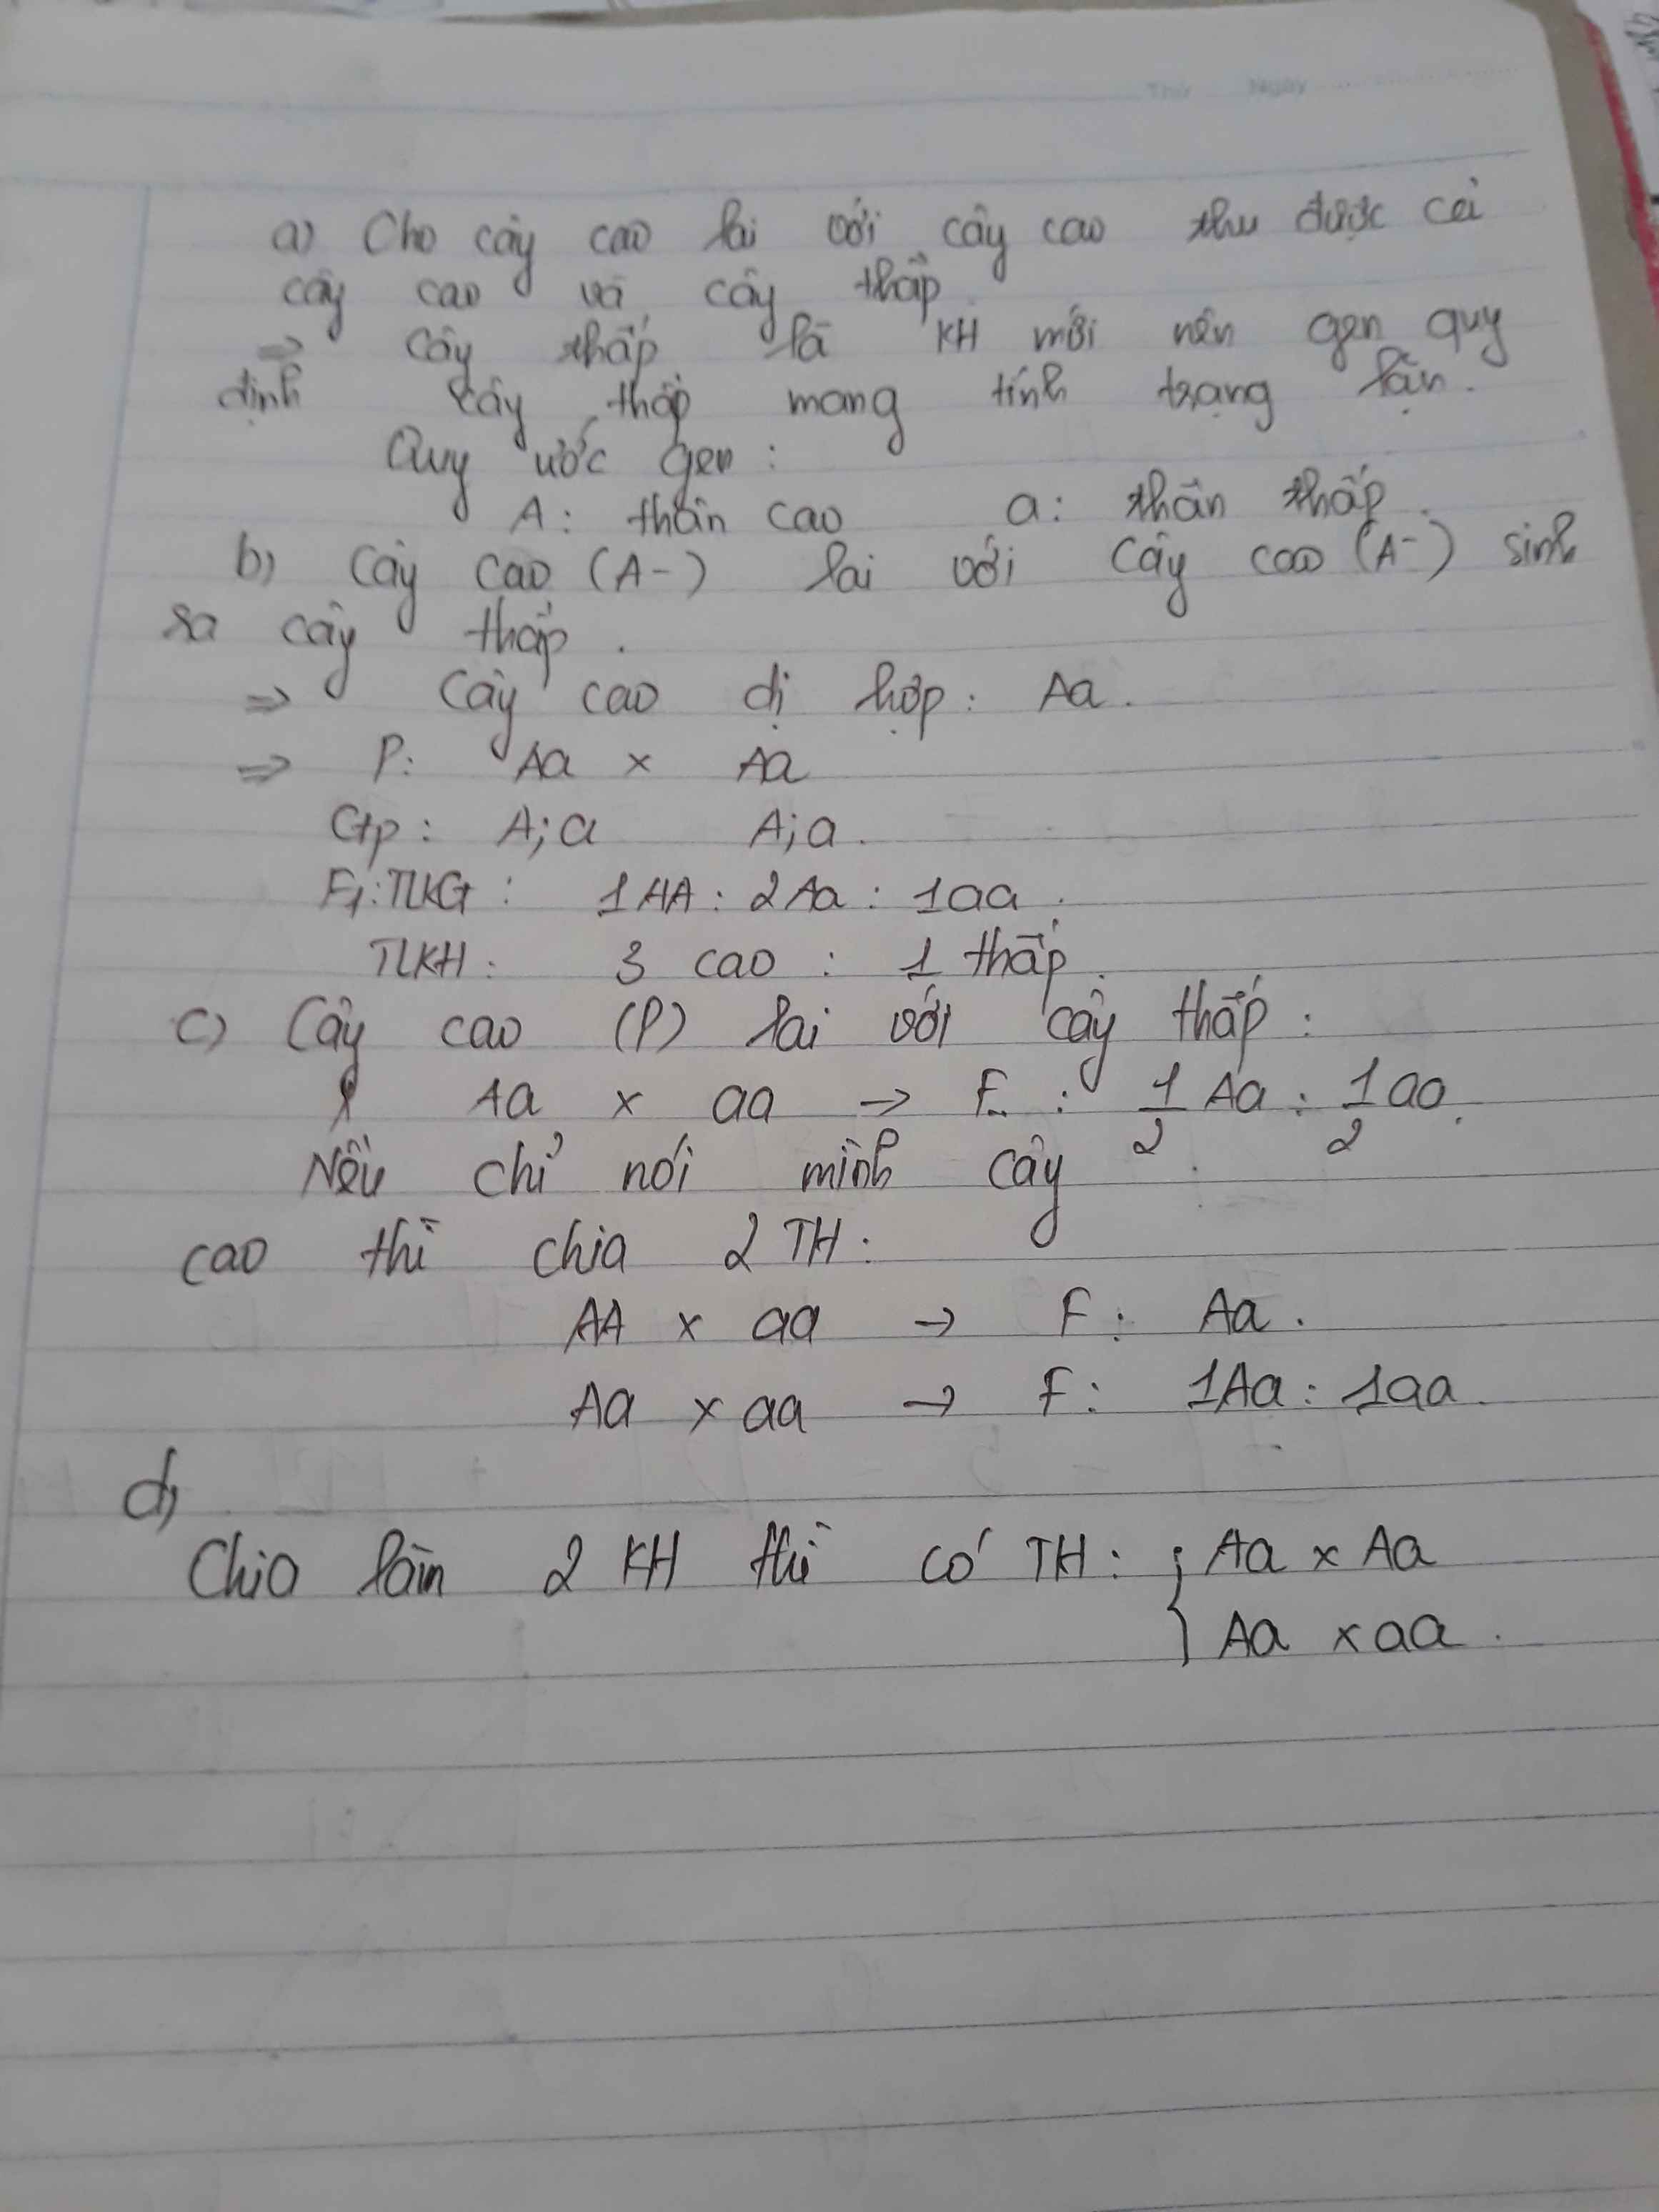 Thứ Ngày
a) Cho cây cao lai với cây cao thu được cả
cây cao và cây thấp
⇒ Cây thấp là KH mới nên gen quy
định cây thấp mang tính trạng lặn.
Quy ước gen :
A: thân cao a: thân thấp.
b) Cây cao (A-) lai với cây cao (A-) sinh
ra cây thấp.
⇒ Cây cao dị hợp: Aa.
⇒ P: Aa x Aa
Gp: A;a A;a.
F1:TLKG: 1AA : 2Aa : 1aa.
TLKH: 3 cao : 1 thấp.
c) Cây cao (P) lai với cây thấp:
Aa x aa → F : 1/2 Aa : 1/2 aa.
Nếu chỉ nói mình cây
cao thì chia 2 TH:
AA x aa → F: Aa.
Aa x aa → F: 1Aa : 1aa.
d)
Chia làm 2 KH thì có TH: { Aa x Aa
Aa x aa.